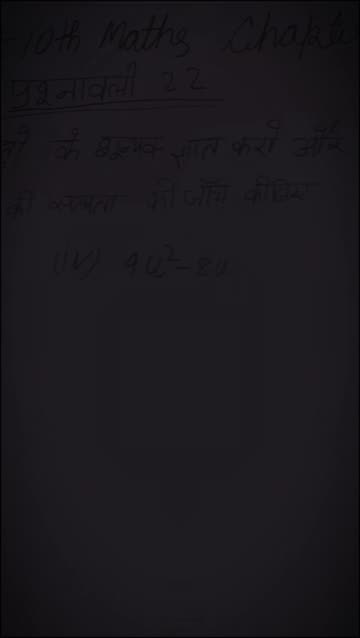 10th Maths Chapte
प्रश्नावली 2.2
के शून्यक ज्ञात करो और
की सत्यता की जाँच कीजिए
(iv) 4u²-8u